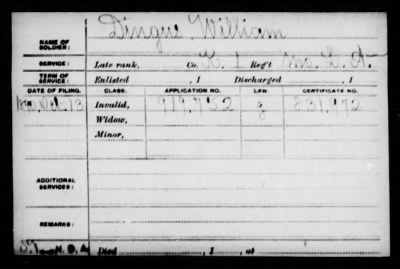 NAME OF SOLDIER: Dingus William
SERVICE: Late rank, Co. K, 1 Reg't Mo. L. A.
TERM OF SERVICE: Enlisted , 1 Discharged , 1
DATE OF FILING. CLASS. APPLICATION NO. LAW. CERTIFICATE NO.
Oct 13 Invalid, 919.732 831.972
Widow,
Minor,
ADDITIONAL SERVICES:
REMARKS:
Died , 1 , at